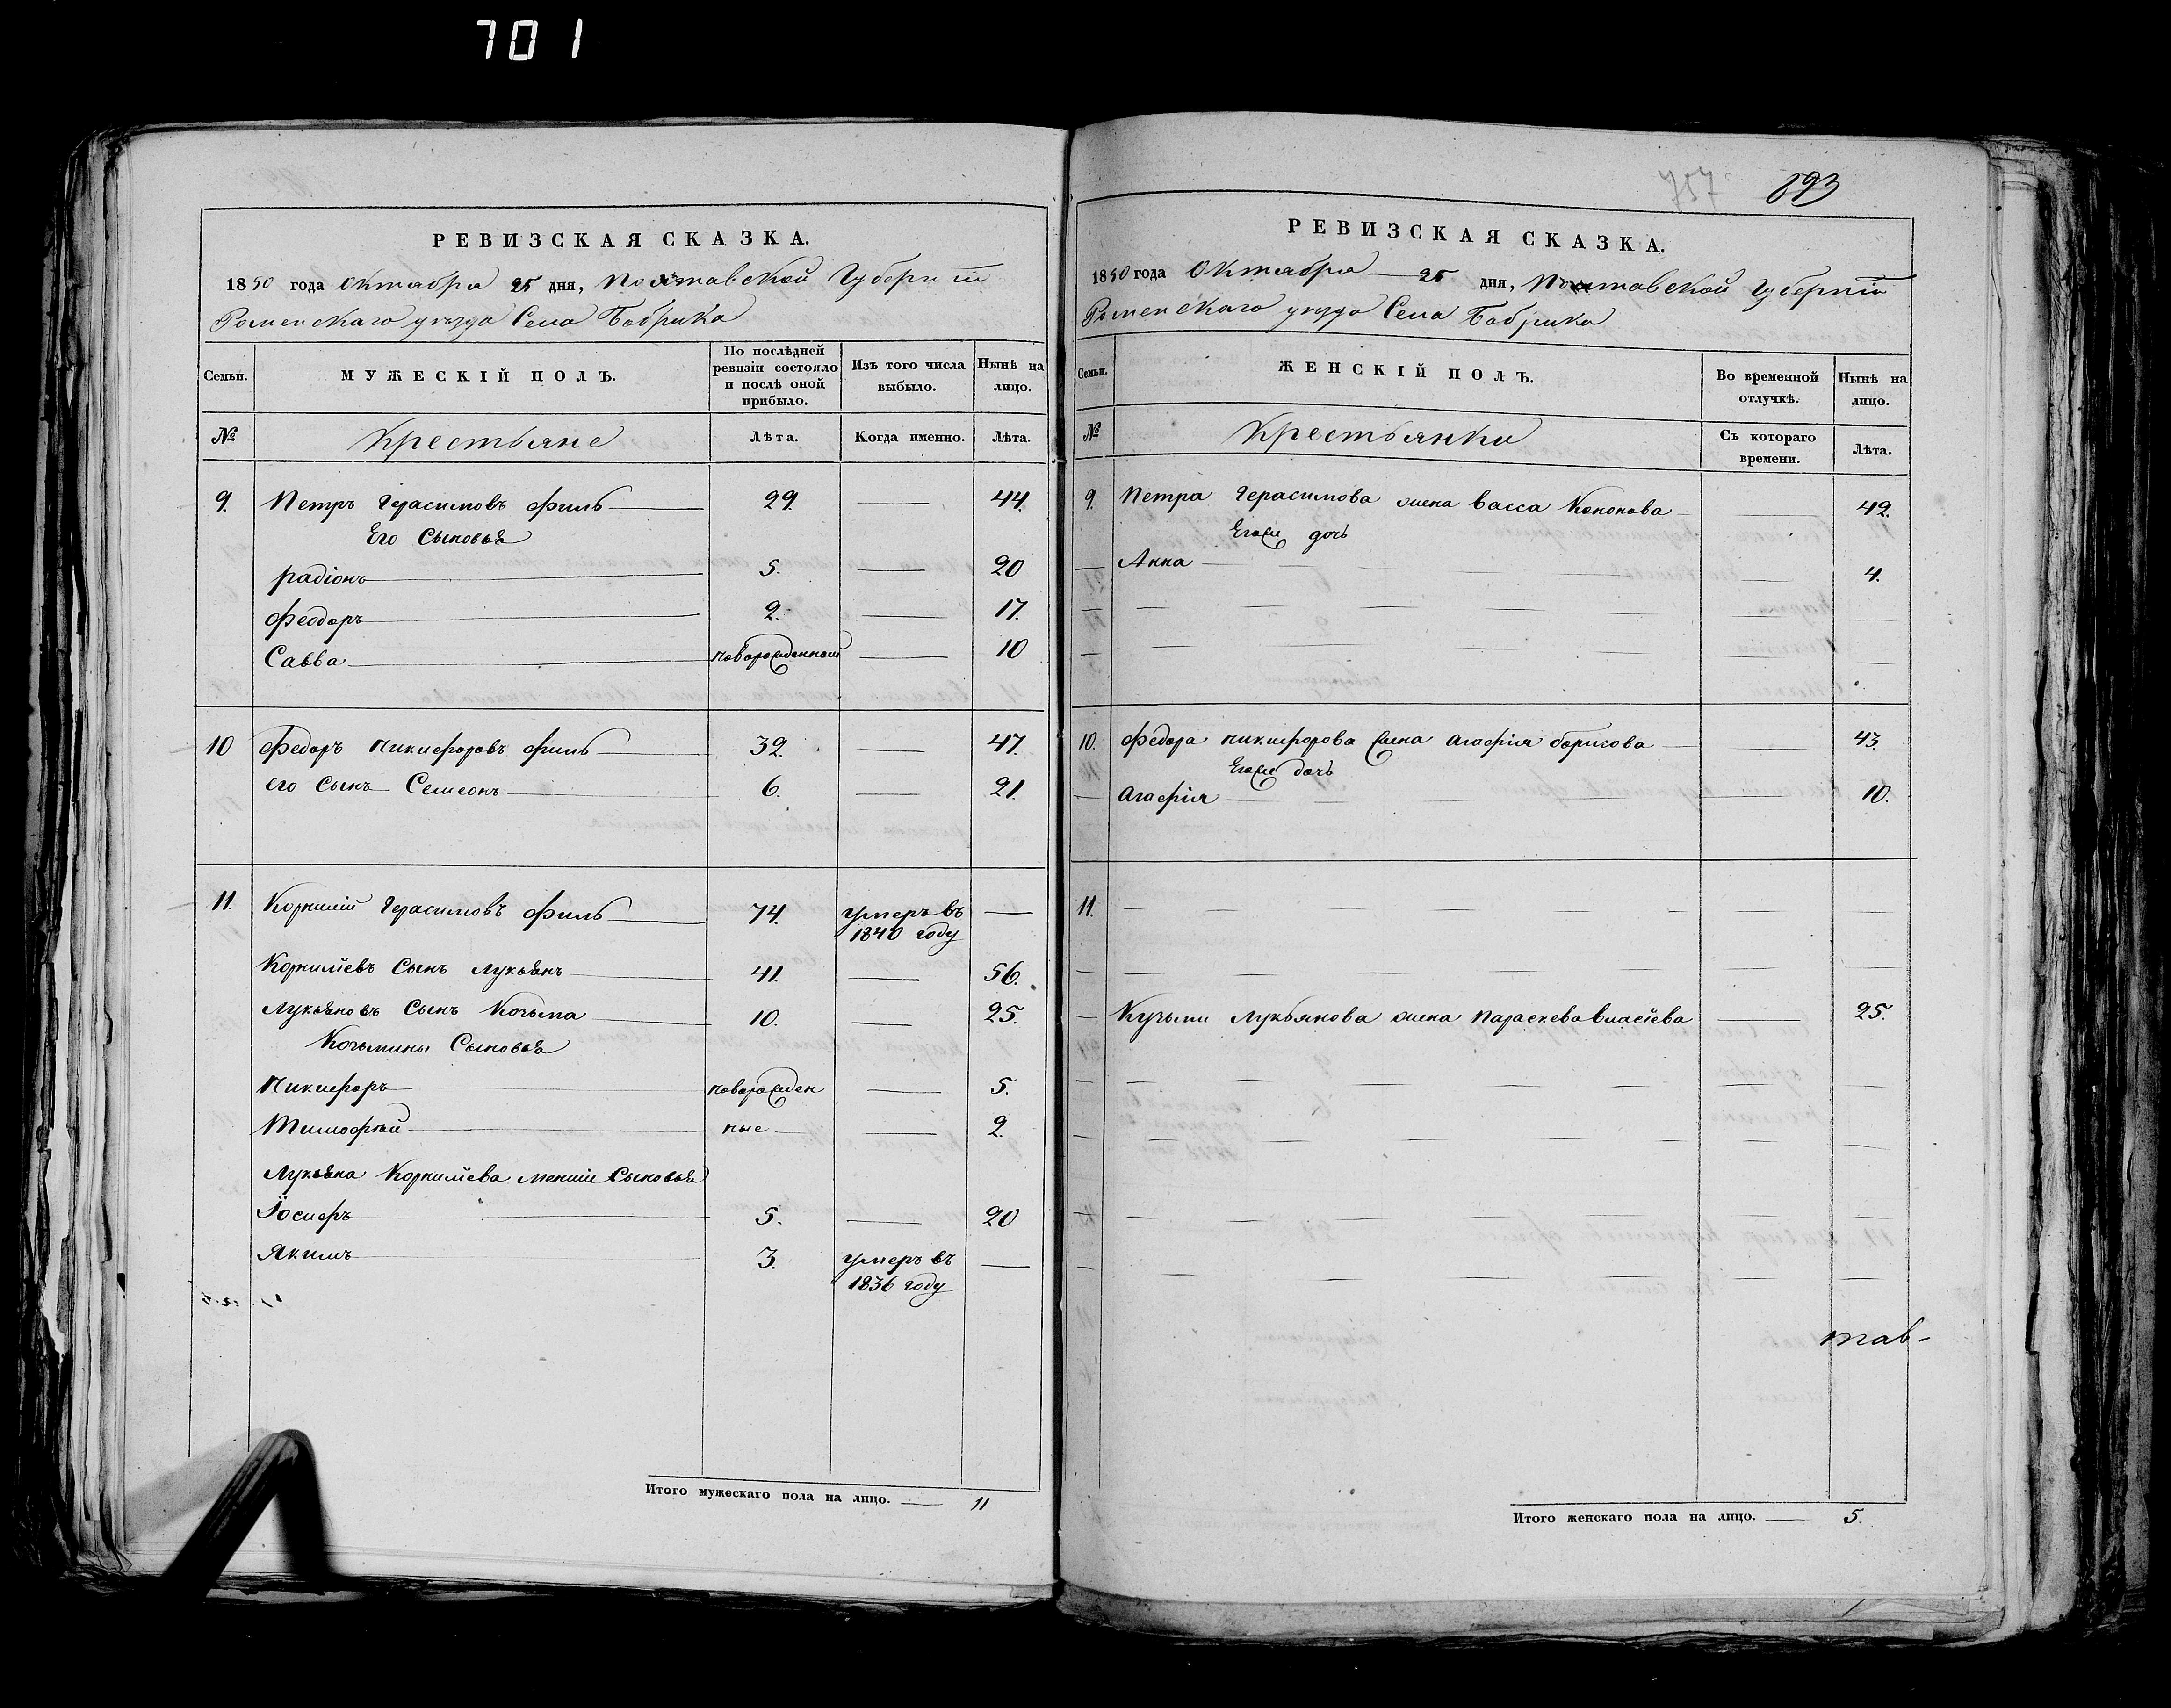 701
РЕВИЗСКАЯ СКАЗКА.
1850 года Октября 25 дня, Полтавской Губерніи
Роменскаго уѣзда Села Бобрика
Семьи. МУЖЕСКІЙ ПОЛЪ. По послѣдней ревизіи состояло и послѣ оной прибыло. Изъ того числа выбыло. Нынѣ на лицо.
№ Крестьяне Лѣта. Когда именно. Лѣта.
9. Петръ Герасимовъ Филь 29. 44.
Его Сыновья
Радіонъ 5. 20
Феодоръ 2. 17.
Савва новорожденный 10
10 Федоръ Никифоровъ Филь 32. 47.
его Сынъ Семеонъ 6. 21.
11. Корнилій Герасимовъ Филь 74. умеръ въ 1840 году
Корнилӥевъ Сынъ Лукьянъ 41. 56.
Лукьяновъ Сынъ Козьма 10. 25.
Козьмины Сыновья
Никифоръ новорожден 5.
Тимофѣй ные 2.
Лукьяна Корнилӥева меншіе Сыновья
Іосифъ 5. 20
Якимъ 3. умеръ въ 1836 году
Итого мужескаго пола на лицо. 11
757 893
РЕВИЗСКАЯ СКАЗКА.
1850 года Октября 25 дня, Полтавской Губерніи
Роменскаго уѣзда Села Бобрика
Семьи. ЖЕНСКІЙ ПОЛЪ. Во временной отлучкѣ. Нынѣ на лицо.
№ Крестьянки Съ котораго времени. Лѣта.
9. Петра Герасимова жена Васса Кононова 42.
Егоже дочь
Анна 4.
10. Федора Никифорова жена Агафія Борисова 43.
Егоже дочь
Агафія 10.
11.
Кузьми Лукьянова жена Параскева Власӥева 25.
тав-
Итого женскаго пола на лицо. 5.